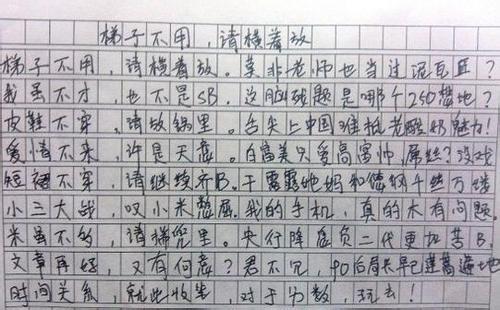 梯子不用，请横着放
梯子不用，请横着放。莫非老师也当过泥瓦匠？
我虽不才，也不是SB。这脑残题是哪个250想地？
皮鞋不穿，请放锅里。舌尖上中国难抵老酸奶魅力！
爱情不来，许是天意。白富美只爱高富帅，屌丝？没戏
短裙不穿，请继续齐B。干露露她妈和德纲千丝万缕
小三大战，叹小米憋屈。我的手机，真的木有问题
米虽不多，请揣兜里。央行降息负二代更加苦B
文章再好，又有何意？君不见，90后局长早已蓬蒿遍地
时间关系，就此收坐，对于分数，玩去！